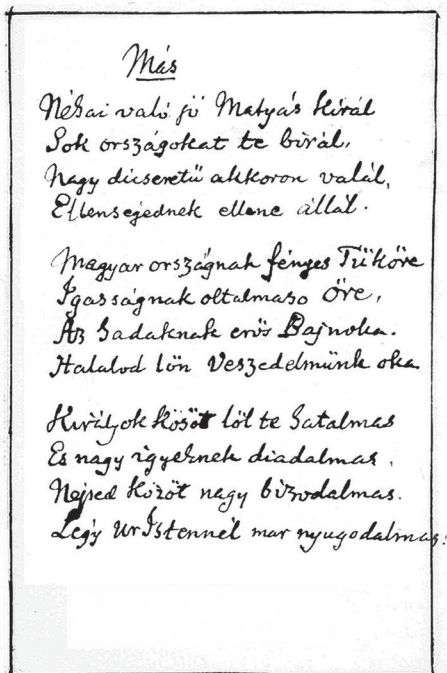 Más
Néhai való jó Matyás Kirâl
Sok országokat te birál,
Nagy dicseretű akkoron valál,
Ellensegednek ellene állál.
Magyar országnak fényes Tüköre
Igasságnak oltalmaso őre,
Az hadaknak erős Bajnoka.
Halalod lön Veszedelmünk oka
Királyok közöt löl te hatalmas
Es nagy igyeknek diadalmas,
Neped közöt nagy bizodalmas.
Légy Ur Istennél mar nyugodalmas!